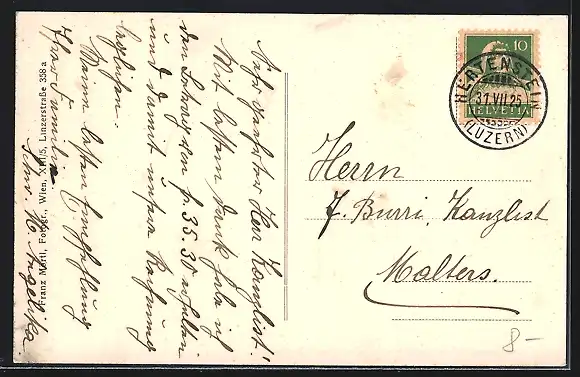 Sehr geehrter Herr Kanzlist!
Mit bestem Dank habe ich
den Betrag von fr. 35.30 erhalten
und damit unsere Rechnung
beglichen.
Meine besten Empfehlung
Ihrer Familie
Franz Mörtl, Fotogr., Wien, XIII/5, Linzerstraße 358 a
10
HELVETIA
HERTENSTEIN
31.VII.25
(LUZERN)
Herrn
J. Burri, Kanzlist
Malters.
8 -